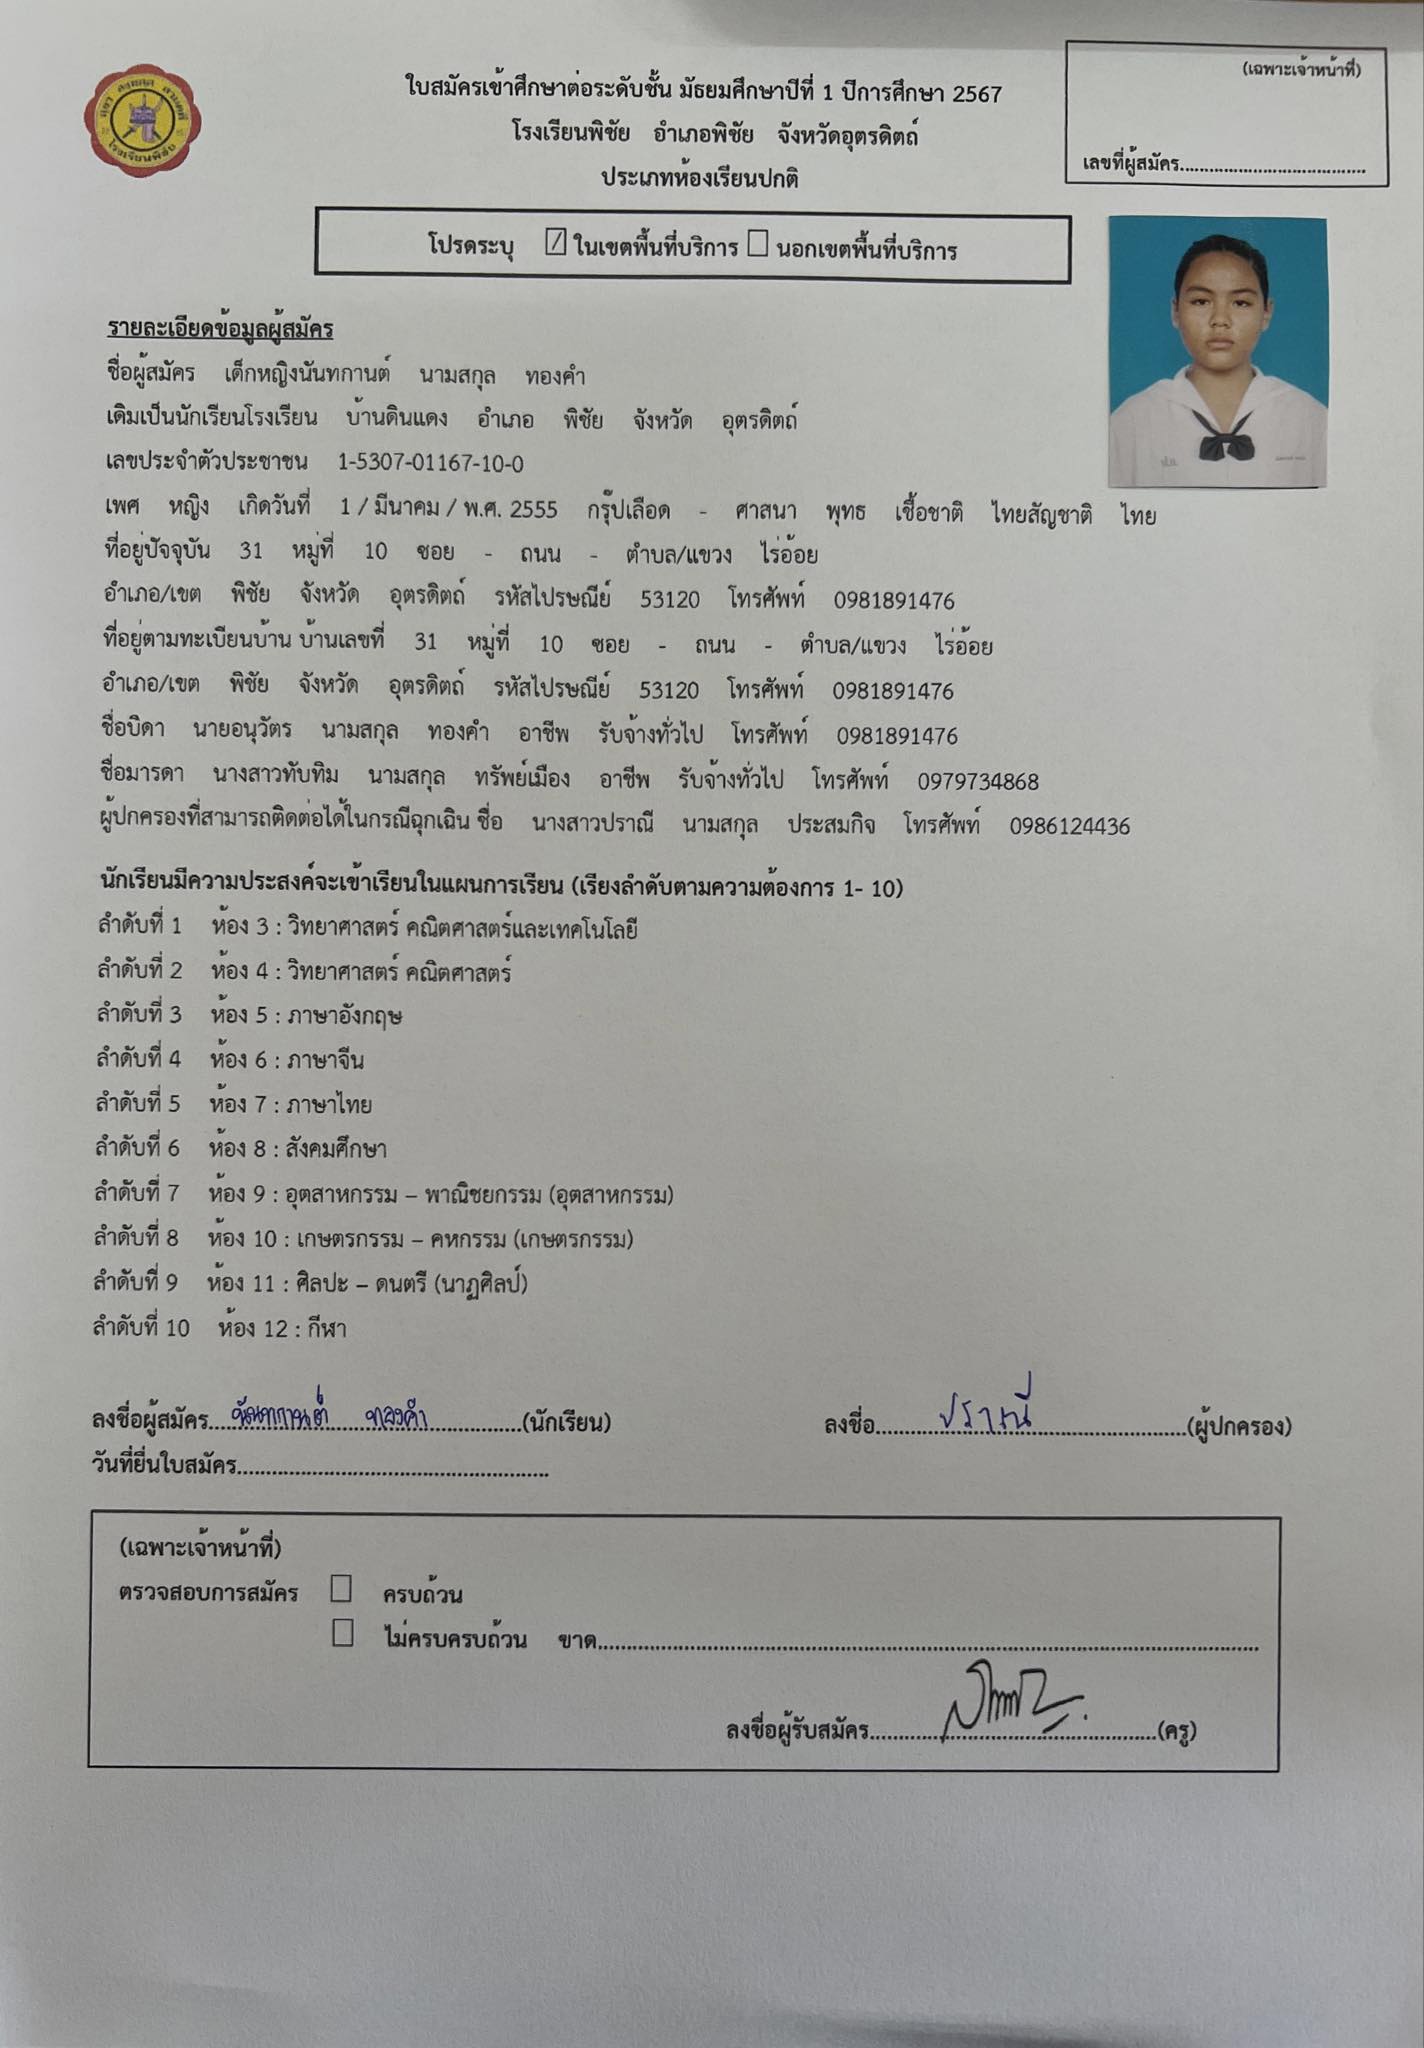 (เฉพาะเจ้าหน้าที่)
เลขที่ผู้สมัคร......................................
ใบสมัครเข้าศึกษาต่อระดับชั้น มัธยมศึกษาปีที่ 1 ปีการศึกษา 2567
โรงเรียนพิชัย อำเภอพิชัย จังหวัดอุตรดิตถ์
ประเภทห้องเรียนปกติ
โรงเรียนพิชัย
โปรดระบุ ☑ ในเขตพื้นที่บริการ ☐ นอกเขตพื้นที่บริการ
รายละเอียดข้อมูลผู้สมัคร
ชื่อผู้สมัคร เด็กหญิงนันทกานต์ นามสกุล ทองคำ
เดิมเป็นนักเรียนโรงเรียน บ้านดินแดง อำเภอ พิชัย จังหวัด อุตรดิตถ์
เลขประจำตัวประชาชน 1-5307-01167-10-0
เพศ หญิง เกิดวันที่ 1 / มีนาคม / พ.ศ. 2555 กรุ๊ปเลือด - ศาสนา พุทธ เชื้อชาติ ไทยสัญชาติ ไทย
ที่อยู่ปัจจุบัน 31 หมู่ที่ 10 ซอย - ถนน - ตำบล/แขวง ไร่อ้อย
อำเภอ/เขต พิชัย จังหวัด อุตรดิตถ์ รหัสไปรษณีย์ 53120 โทรศัพท์ 0981891476
ที่อยู่ตามทะเบียนบ้าน บ้านเลขที่ 31 หมู่ที่ 10 ซอย - ถนน - ตำบล/แขวง ไร่อ้อย
อำเภอ/เขต พิชัย จังหวัด อุตรดิตถ์ รหัสไปรษณีย์ 53120 โทรศัพท์ 0981891476
ชื่อบิดา นายอนุวัตร นามสกุล ทองคำ อาชีพ รับจ้างทั่วไป โทรศัพท์ 0981891476
ชื่อมารดา นางสาวทับทิม นามสกุล ทรัพย์เมือง อาชีพ รับจ้างทั่วไป โทรศัพท์ 0979734868
ผู้ปกครองที่สามารถติดต่อได้ในกรณีฉุกเฉิน ชื่อ นางสาวปราณี นามสกุล ประสมกิจ โทรศัพท์ 0986124436
นักเรียนมีความประสงค์จะเข้าเรียนในแผนการเรียน (เรียงลำดับตามความต้องการ 1- 10)
ลำดับที่ 1 ห้อง 3 : วิทยาศาสตร์ คณิตศาสตร์และเทคโนโลยี
ลำดับที่ 2 ห้อง 4 : วิทยาศาสตร์ คณิตศาสตร์
ลำดับที่ 3 ห้อง 5 : ภาษาอังกฤษ
ลำดับที่ 4 ห้อง 6 : ภาษาจีน
ลำดับที่ 5 ห้อง 7 : ภาษาไทย
ลำดับที่ 6 ห้อง 8 : สังคมศึกษา
ลำดับที่ 7 ห้อง 9 : อุตสาหกรรม – พาณิชยกรรม (อุตสาหกรรม)
ลำดับที่ 8 ห้อง 10 : เกษตรกรรม – คหกรรม (เกษตรกรรม)
ลำดับที่ 9 ห้อง 11 : ศิลปะ – ดนตรี (นาฏศิลป์)
ลำดับที่ 10 ห้อง 12 : กีฬา
ลงชื่อผู้สมัคร...นันทกานต์ ทองคำ...(นักเรียน) ลงชื่อ...ปราณี...(ผู้ปกครอง)
วันที่ยื่นใบสมัคร......................................................
(เฉพาะเจ้าหน้าที่)
ตรวจสอบการสมัคร ☐ ครบถ้วน
☐ ไม่ครบครบถ้วน ขาด......................................................
ลงชื่อผู้รับสมัคร......................................................(ครู)